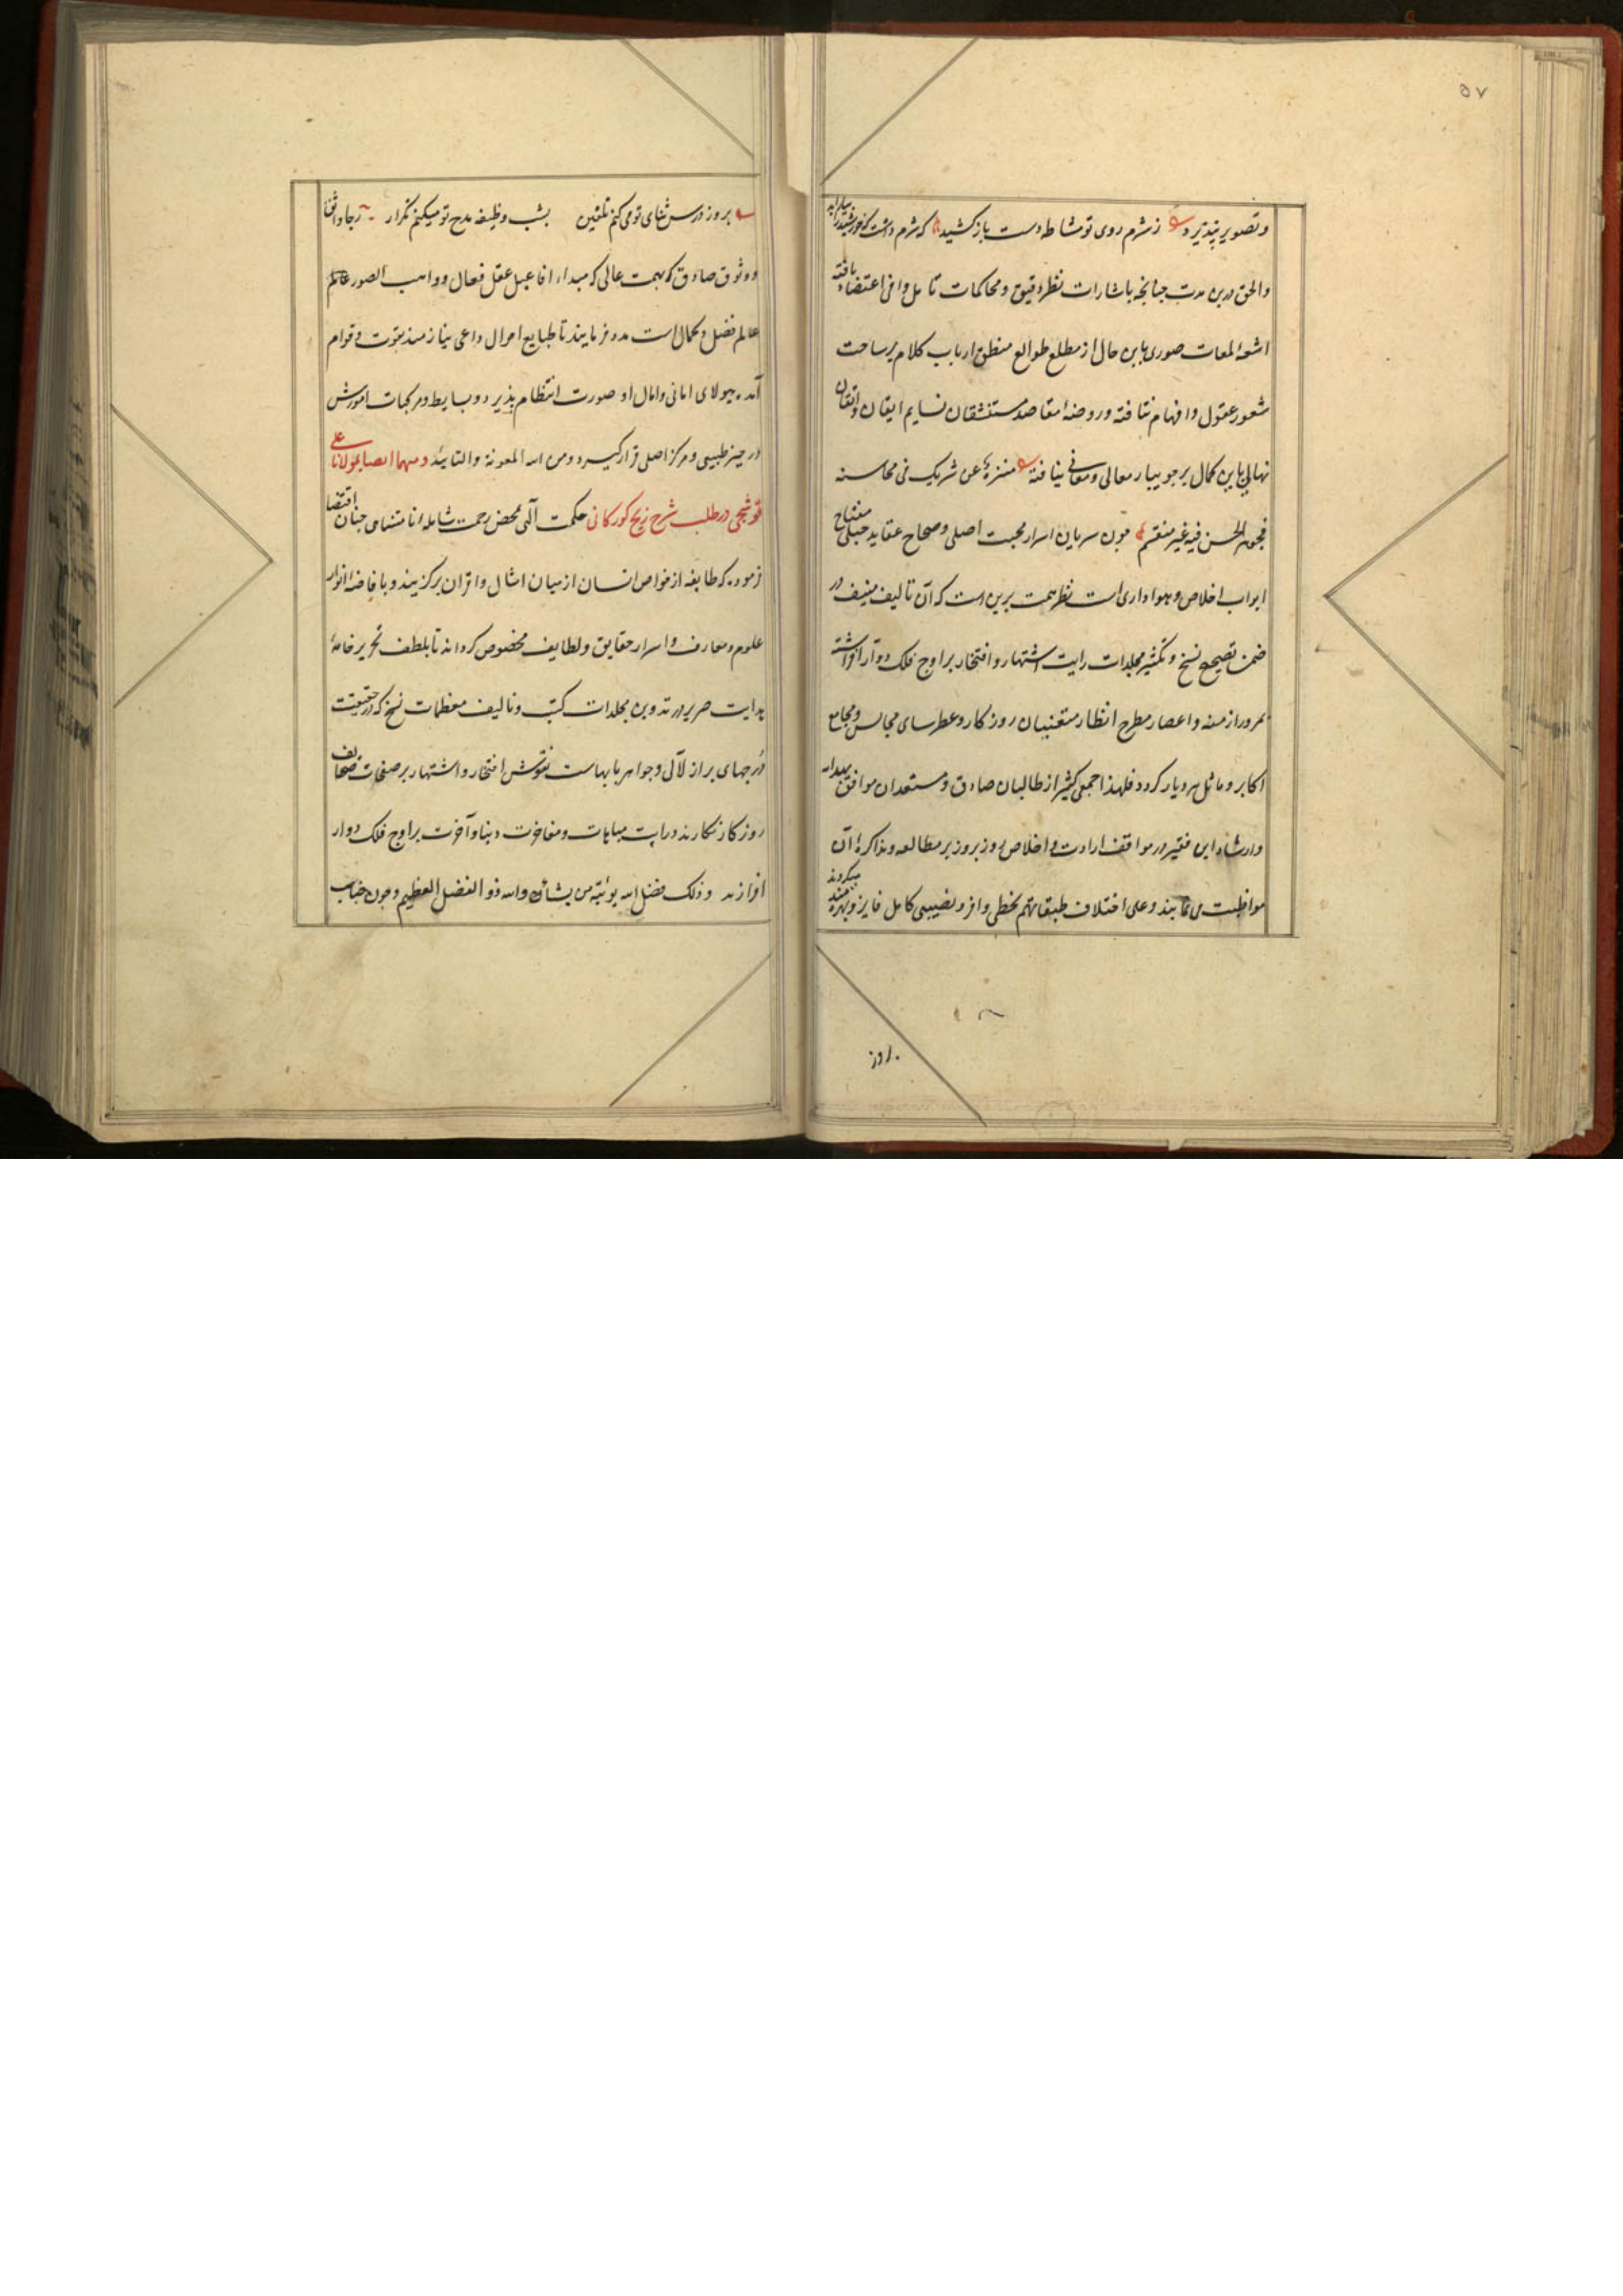 ۵۷
وتصویر پذیرد زشرم روی تو مشاطه دست باز کشید که شرم داشت که خورشید را بیاراید
والحق درین مدت چنانچه باشارات نظر دقیق ومحاکمات تامل وافی اعتضاد یافته
اشعه لمعات صوری باین حال از مطلع طوالع منطق ارباب کلام بر ساحت
شعور عقول وافهام نتافته و روضه مقاصد مستنشقان نسایم ایقان واتقان
نهالی باین کمال بر جویبار معالی ومعانی نیافته منزه عن شریک فی محاسنه
فجوهر الحسن فیه غیر منقسم چون سریان اسرار محبت اصلی وصحاح عقاید جبلی مفتاح
ابواب اخلاص وهواداری است نظر همت برین است که آن تالیف منیف در
ضمن تصحیح نسخ وتکثیر مجلدات رایت اشتهار وافتخار بر اوج فلک دوار افراشته
بمرور ازمنه واعصار مطرح انظار روزکار وعطرسای مجالس ومجامع
اکابر وماثل هر دیار کردد فلهذا جمعی کثیر از طالبان صادق ومستعدان موافق
وارشاد این فقیر در مواقف ارادت واخلاص روز بروز بر مطالعه ومذاکره آن
مواظبت می نمایند وعلی اختلاف طبقاتهم بحظی وافر ونصیبی کامل فایز وبهره مند میکردند
بروز
بروز درس ثنای تو می کنم تلقین بشب وظیفه مدح تو میکنم تکرار رجا واثق
ووثوق صادق که همت عالی که مبداء افاعیل عقل فعال وواهب الصور عالم
عالم فضل وکمال است مدد فرمایند تا طبایع احوال داعی نیازمند بقوت وقوام
آمده هیولای امانی وامال او صورت انتظام پذیرد وبسایط ومرکبات امورش
در حیز طبیعی ومرکز اصلی قرار کیرد ومن الله المعونة والتایید ومنها ایضا بمولانا علی
قوشجی در طلب شرح زیج کورکانی حکمت آلهی محض رحمت شامله نامتناهی چنان اقتضا
فرموده که طایفه از خواص انسان از میان امثال واقران برکزیند وبافاضه انوار
علوم ومعارف واسرار حقایق ولطایف مخصوص کرداند تا بلطف تحریر خامه
هدایت صریر در تدوین مجلدات کتب وتالیف معظمات نسخ که در حقیقت
درجهای پر از لآلی وجواهر بابهاست نقوش افتخار واشتهار بر صفحات صحایف
روزکار نکارند ورایت مباهات ومفاخرت دنیا وآخرت بر اوج فلک دوار
افرازند وذلک فضل الله یوتیه من یشاء والله ذو الفضل العظیم وچون جناب